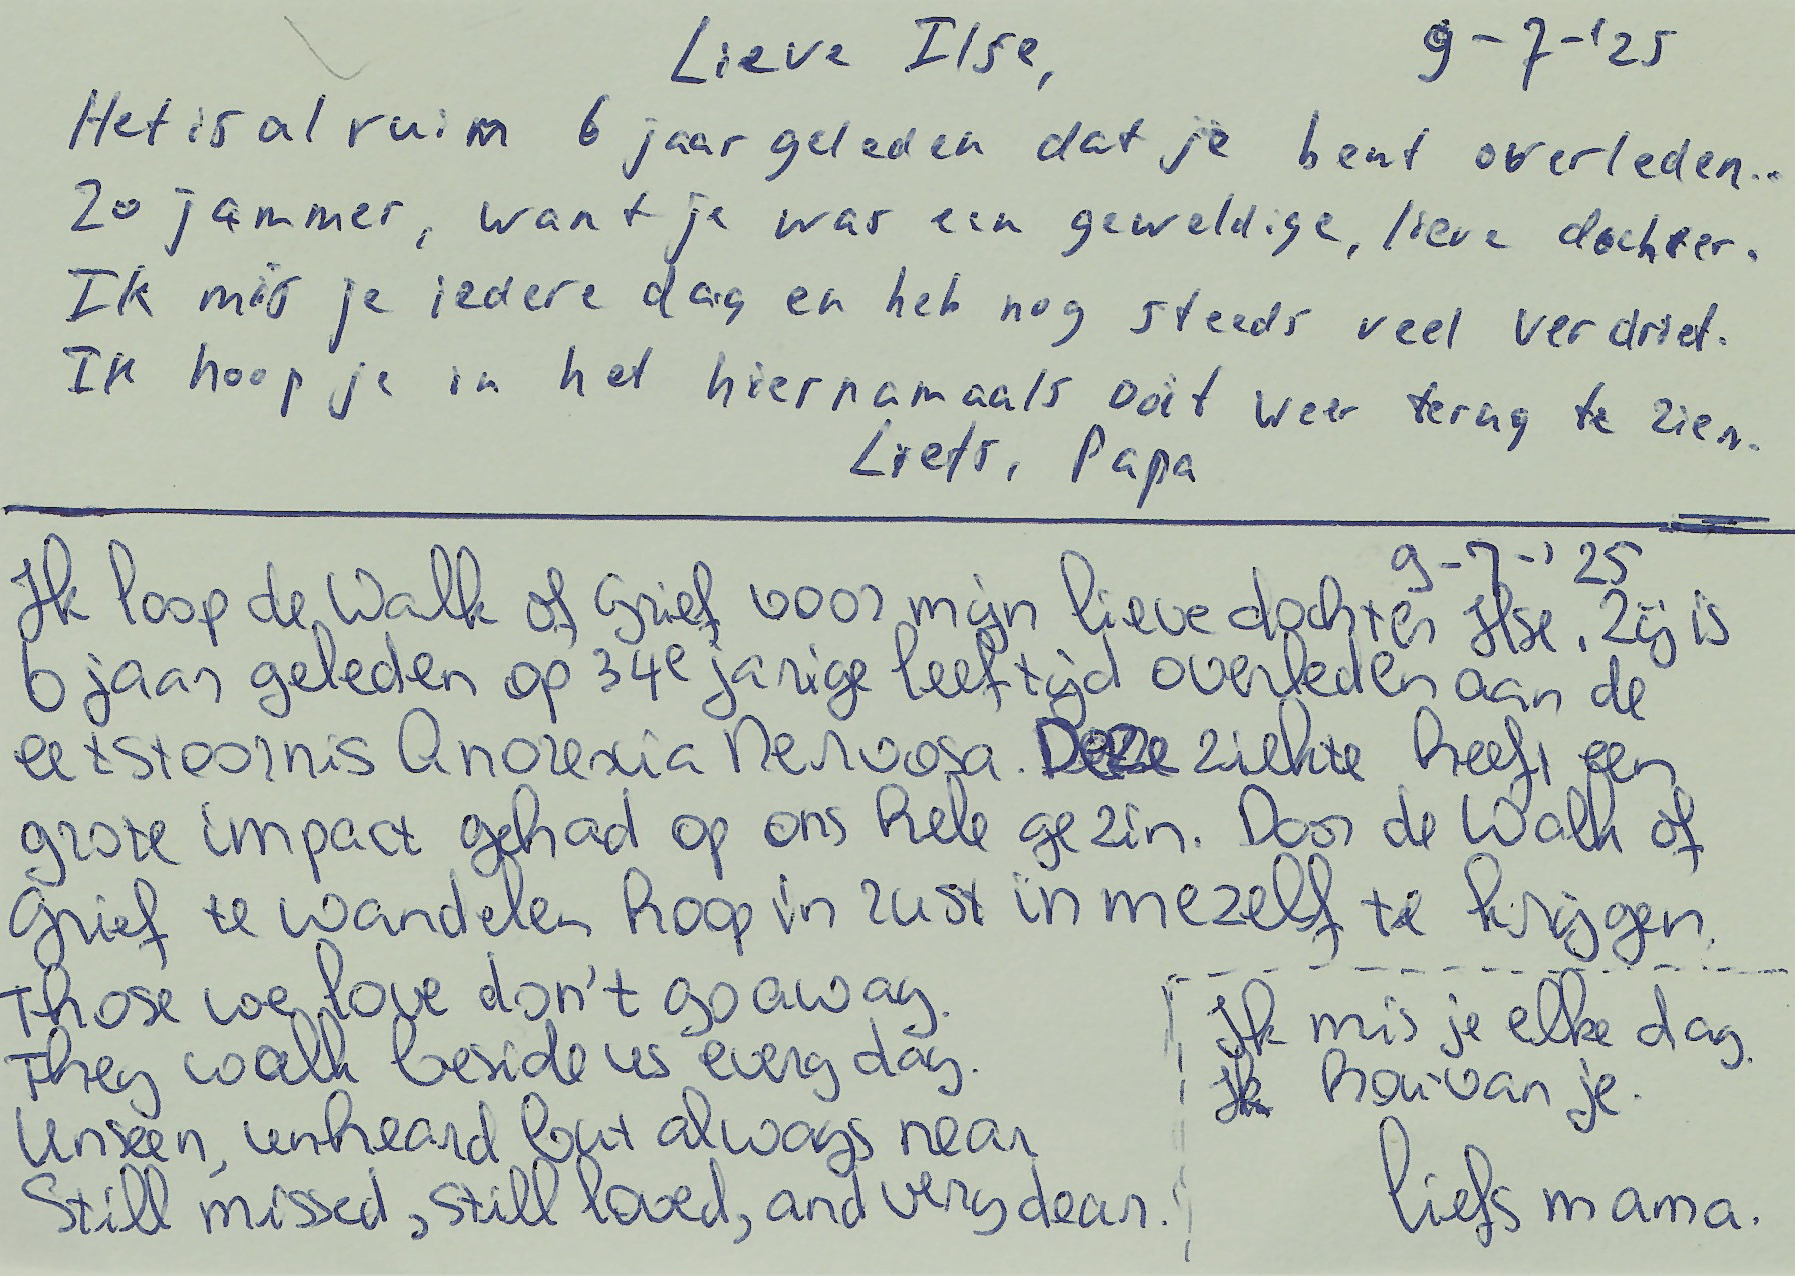 Lieve Ilse, 9-7-'25
Het is al ruim 6 jaar geleden dat je bent overleden..
Zo jammer, want je was een geweldige, lieve dochter.
Ik mis je iedere dag en heb nog steeds veel verdriet.
Ik hoop je in het hiernamaals ooit weer terug te zien.
Liefs, Papa
9-7-'25
Ik loop de Walk of Grief voor mijn lieve dochter Ilse. Zij is
6 jaar geleden op 34e jarige leeftijd overleden aan de
eetstoornis Anorexia Nervosa. Deze ziekte heeft een
grote impact gehad op ons hele gezin. Door de Walk of
Grief te wandelen hoop in rust in mezelf te krijgen.
Those we love don't go away.
They walk beside us every day.
Unseen, unheard but always near
Still missed, still loved, and very dear.
Ik mis je elke dag.
Ik hou van je.
liefs mama.